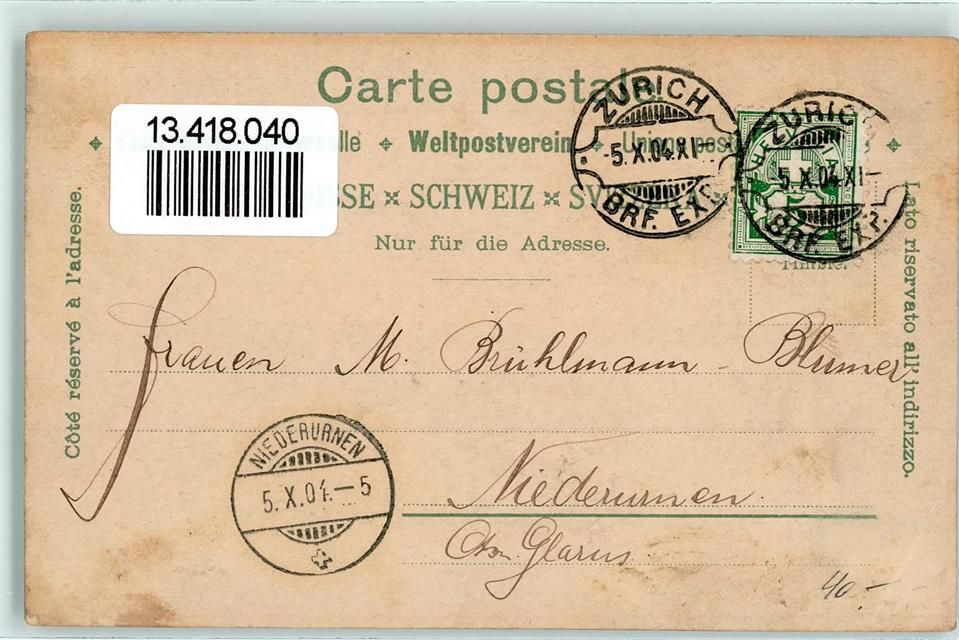 Carte postale
13.418.040
Weltpostverein
SCHWEIZ
Nur für die Adresse.
Côté réservé à l'adresse.
Lato riservato all' indirizzo.
ZÜRICH
-5.X.04.XI-
BRF. EXP.
ZÜRICH
-5.X.04.XI-
BRF. EXP.
Frauen M. Brühlmann-Blumer
NIEDERURNEN
5.X.04.-5
Niederurnen.
Ctn. Glarus.
40.-